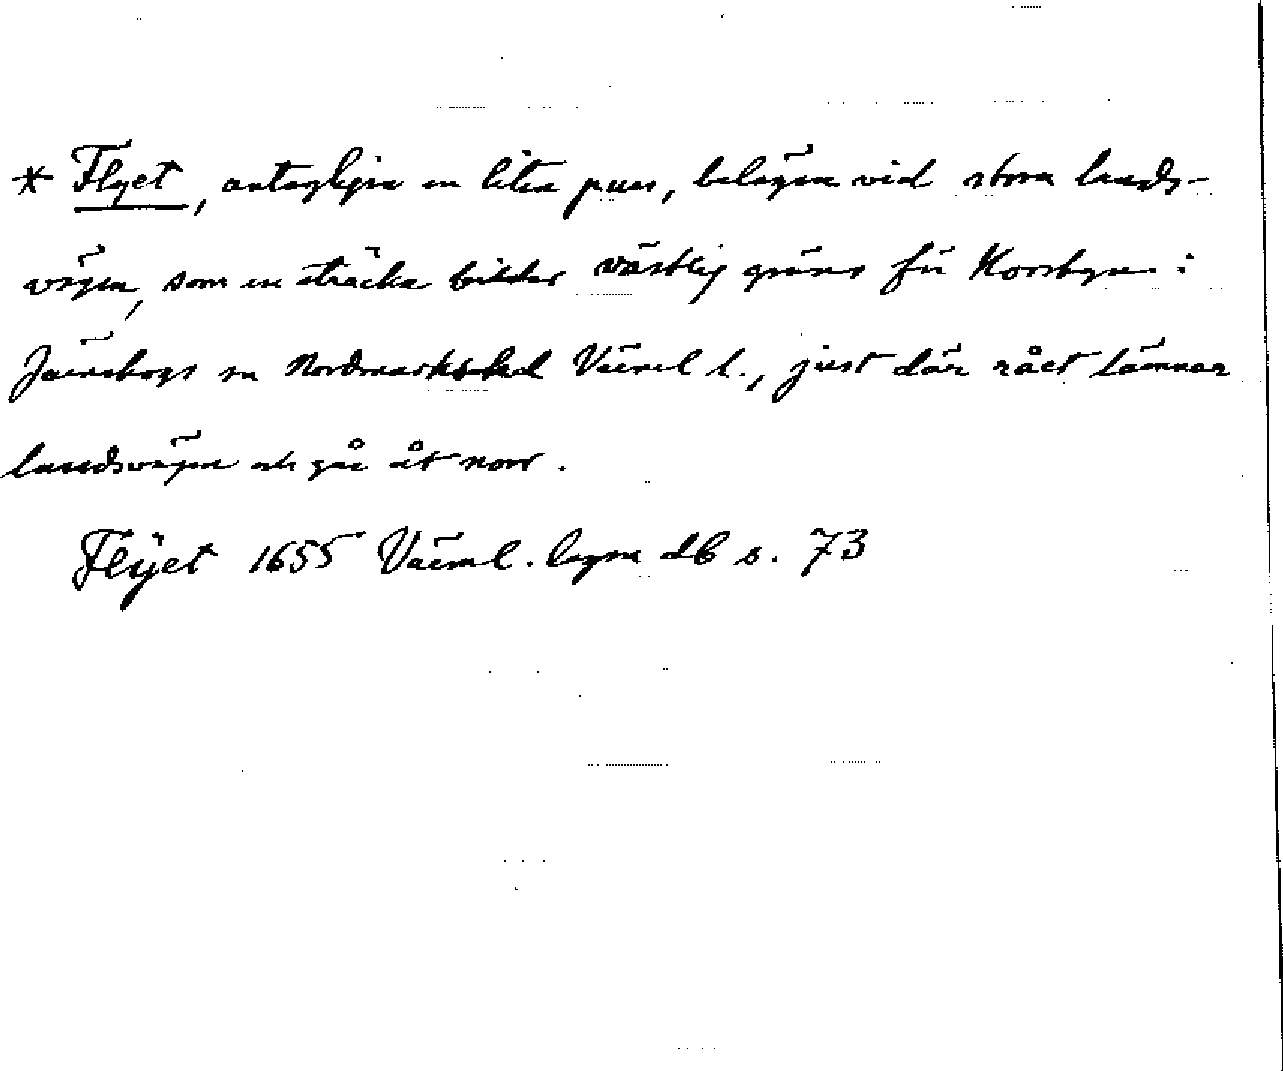 * Flyet, antagligen en liten puss, belägen vid stora lands-
vägen, som en sträcka bildar västlig gräns för Korsbyn i
Järnskogs sn Nordmarks hd Värml l., just där rået lämnar
landsvägen och går åt norr.
Flÿet 1655 Värml. lagm db s. 73